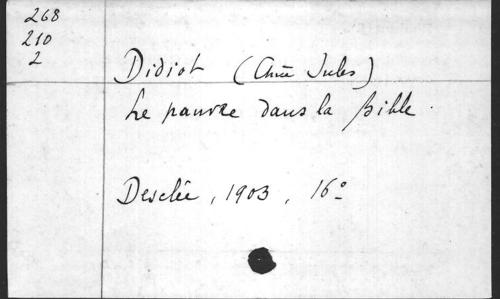 268
210
2
Didiot (Chne Jules)
Le pauvre dans la Bible.
Desclée, 1903, 16º